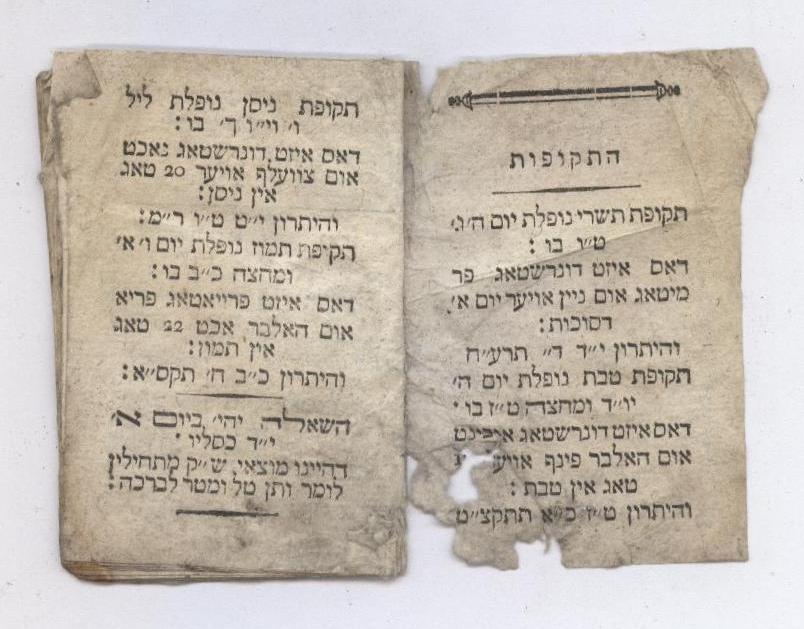 התקופות
תקופת תשרי נופלת יום ה׳ ג׳
ט״ו בו :
דאס איזט דונרשטאג פר
מיטאג אום ניין אויער יום א׳
דסוכות :
והיתרון י״ד ד״ תרע״ח
תקופת טבת נופלת יום ה׳
יו״ד ומחצה ט״ז בו ׳
דאס איזט דונרשטאג
אום האלבר פינף
טאג אין טבת :
והיתרון ט״ז כ״א תתקצ״ט
תקופת ניסן נופלת ליל
ו׳ וי״ו ך׳ בו :
דאס איזט דונרשטאג נאכט
אום צוועלף אויער 20 טאג
אין ניסן :
והיתרון י״ט ט״ו ר״מ :
תקיפת תמוז נופלת יום ו׳ א׳
ומחצה כ״ב בו :
דאס איזט פרויאטאג פריא
אום האלבר אכט 22 טאג
אין תמוז :
והיתרון כ״ב ח׳ תקס״א :
השאלה יהי׳ ביום א׳
י״ד כסליו ׳
דהיינו מוצאי ש״ק מתחילין
לומר ותן טל ומטר לברכה :